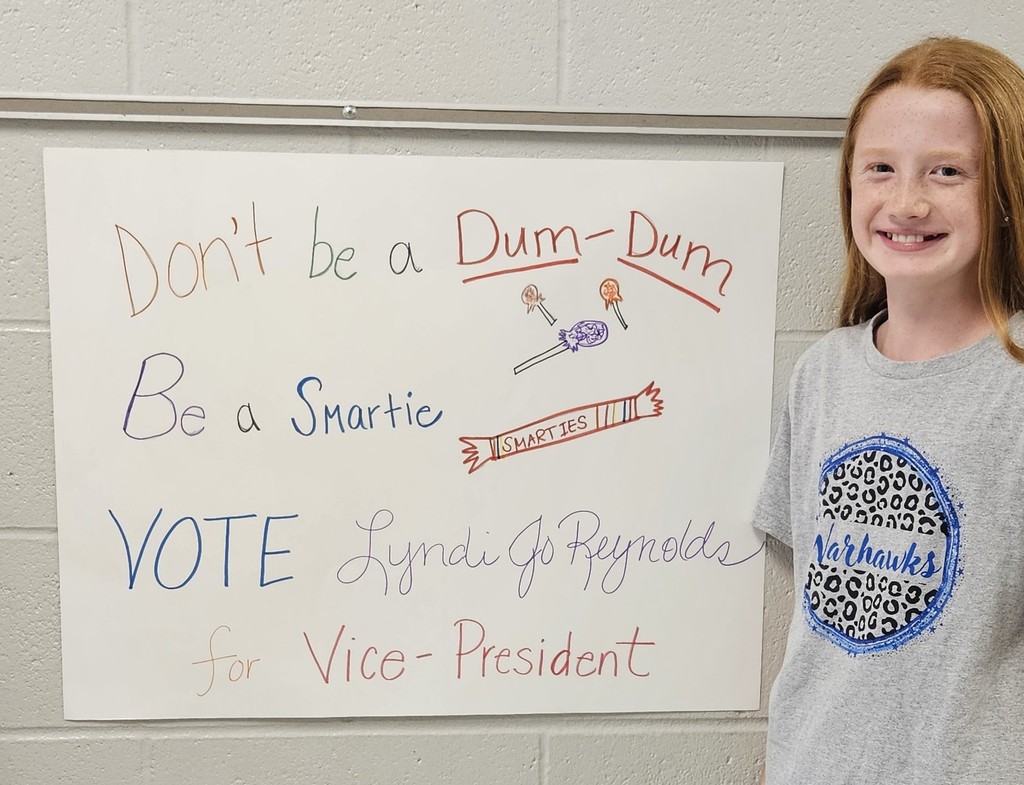 Don't be a Dum-Dum
Be a Smartie
SMARTIES
VOTE Lyndi Jo Reynolds
for Vice-President
Warhawks